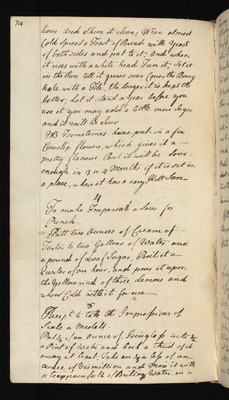 74
hour and skim it clean; When almost
Cold spread a Toast of Bread with yeast
of both sides and put to it; and when
it rises with a white head Tun it; Set it
in the Sun till it grows sour Cover the Bung
hole with a Tile, the longer it is kept the
better; Let it stand a year before you
use it you may add a little more Sugar
and it will be Sour
NB Sometimes have put in a few
Cowslip flowers, which gives it a
pretty flavour But it will be Sour
enough in 3 or 4 Months if it is set in
a place, where it has a very Hott Sun
4
To make Imperial a Sour for
Punch
Putt two ounces of Cream of
Tarter to two Gallons of Water, and
a pound of Loaf Sugar, Boil it a
Quarter of an hour, and pour it upon
the yellow rind of three Lemons and
when Cold bottle it for use
5
to take the Impressions of
Seals & Medals.
Put ½ an ounce of Isinglass into ½
a Pint of Water and boil a third of it
away at least, Take an
ounce of Vermillion and Mix it with
a of Boiling Water, in a